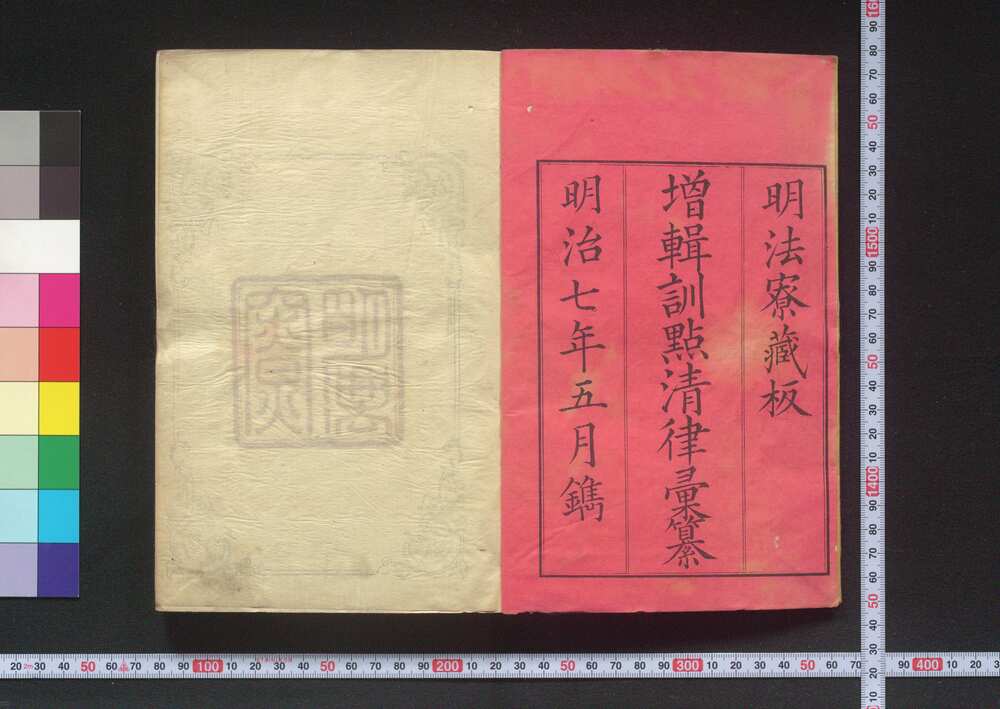 明法寮藏板
増輯訓點清律彙纂
明治七年五月鐫